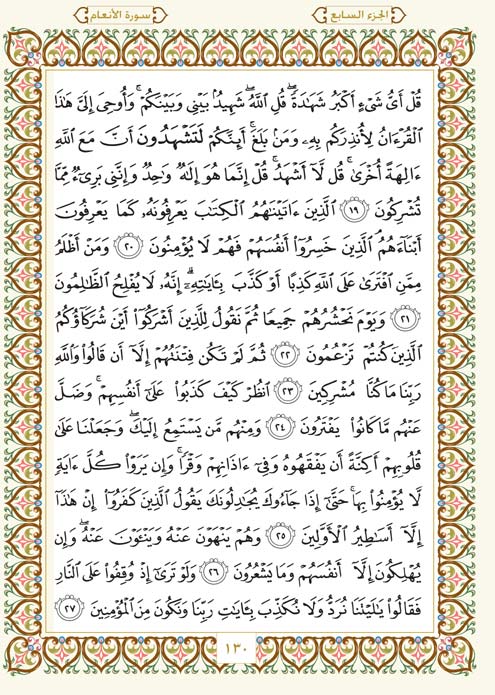 الجزء السابع
سورة الأنعام
قُلْ أَيُّ شَىْءٍ أَكْبَرُ شَهَٰدَةً ۖ قُلِ ٱللَّهُ ۖ شَهِيدٌۢ بَيْنِى وَبَيْنَكُمْ ۚ وَأُوحِىَ إِلَىَّ هَٰذَا
ٱلْقُرْءَانُ لِأُنذِرَكُم بِهِۦ وَمَنۢ بَلَغَ ۚ أَئِنَّكُمْ لَتَشْهَدُونَ أَنَّ مَعَ ٱللَّهِ
ءَالِهَةً أُخْرَىٰ ۚ قُل لَّآ أَشْهَدُ ۚ قُلْ إِنَّمَا هُوَ إِلَٰهٌ وَٰحِدٌ وَإِنَّنِى بَرِىٓءٌ مِّمَّا
تُشْرِكُونَ ١٩ ٱلَّذِينَ ءَاتَيْنَٰهُمُ ٱلْكِتَٰبَ يَعْرِفُونَهُۥ كَمَا يَعْرِفُونَ
أَبْنَآءَهُمُ ۘ ٱلَّذِينَ خَسِرُوٓا۟ أَنفُسَهُمْ فَهُمْ لَا يُؤْمِنُونَ ٢٠ وَمَنْ أَظْلَمُ
مِمَّنِ ٱفْتَرَىٰ عَلَى ٱللَّهِ كَذِبًا أَوْ كَذَّبَ بِـَٔايَٰتِهِۦٓ ۗ إِنَّهُۥ لَا يُفْلِحُ ٱلظَّٰلِمُونَ
٢١ وَيَوْمَ نَحْشُرُهُمْ جَمِيعًا ثُمَّ نَقُولُ لِلَّذِينَ أَشْرَكُوٓا۟ أَيْنَ شُرَكَآؤُكُمُ
ٱلَّذِينَ كُنتُمْ تَزْعُمُونَ ٢٢ ثُمَّ لَمْ تَكُن فِتْنَتُهُمْ إِلَّآ أَن قَالُوا۟ وَٱللَّهِ
رَبِّنَا مَا كُنَّا مُشْرِكِينَ ٢٣ ٱنظُرْ كَيْفَ كَذَبُوا۟ عَلَىٰٓ أَنفُسِهِمْ ۚ وَضَلَّ
عَنْهُم مَّا كَانُوا۟ يَفْتَرُونَ ٢٤ وَمِنْهُم مَّن يَسْتَمِعُ إِلَيْكَ ۖ وَجَعَلْنَا عَلَىٰ
قُلُوبِهِمْ أَكِنَّةً أَن يَفْقَهُوهُ وَفِىٓ ءَاذَانِهِمْ وَقْرًا ۚ وَإِن يَرَوْا۟ كُلَّ ءَايَةٍ
لَّا يُؤْمِنُوا۟ بِهَا ۚ حَتَّىٰٓ إِذَا جَآءُوكَ يُجَٰدِلُونَكَ يَقُولُ ٱلَّذِينَ كَفَرُوٓا۟ إِنْ هَٰذَآ
إِلَّآ أَسَٰطِيرُ ٱلْأَوَّلِينَ ٢٥ وَهُمْ يَنْهَوْنَ عَنْهُ وَيَنْـَٔوْنَ عَنْهُ ۖ وَإِن
يُهْلِكُونَ إِلَّآ أَنفُسَهُمْ وَمَا يَشْعُرُونَ ٢٦ وَلَوْ تَرَىٰٓ إِذْ وُقِفُوا۟ عَلَى ٱلنَّارِ
فَقَالُوا۟ يَٰلَيْتَنَا نُرَدُّ وَلَا نُكَذِّبَ بِـَٔايَٰتِ رَبِّنَا وَنَكُونَ مِنَ ٱلْمُؤْمِنِينَ ٢٧
١٣٠